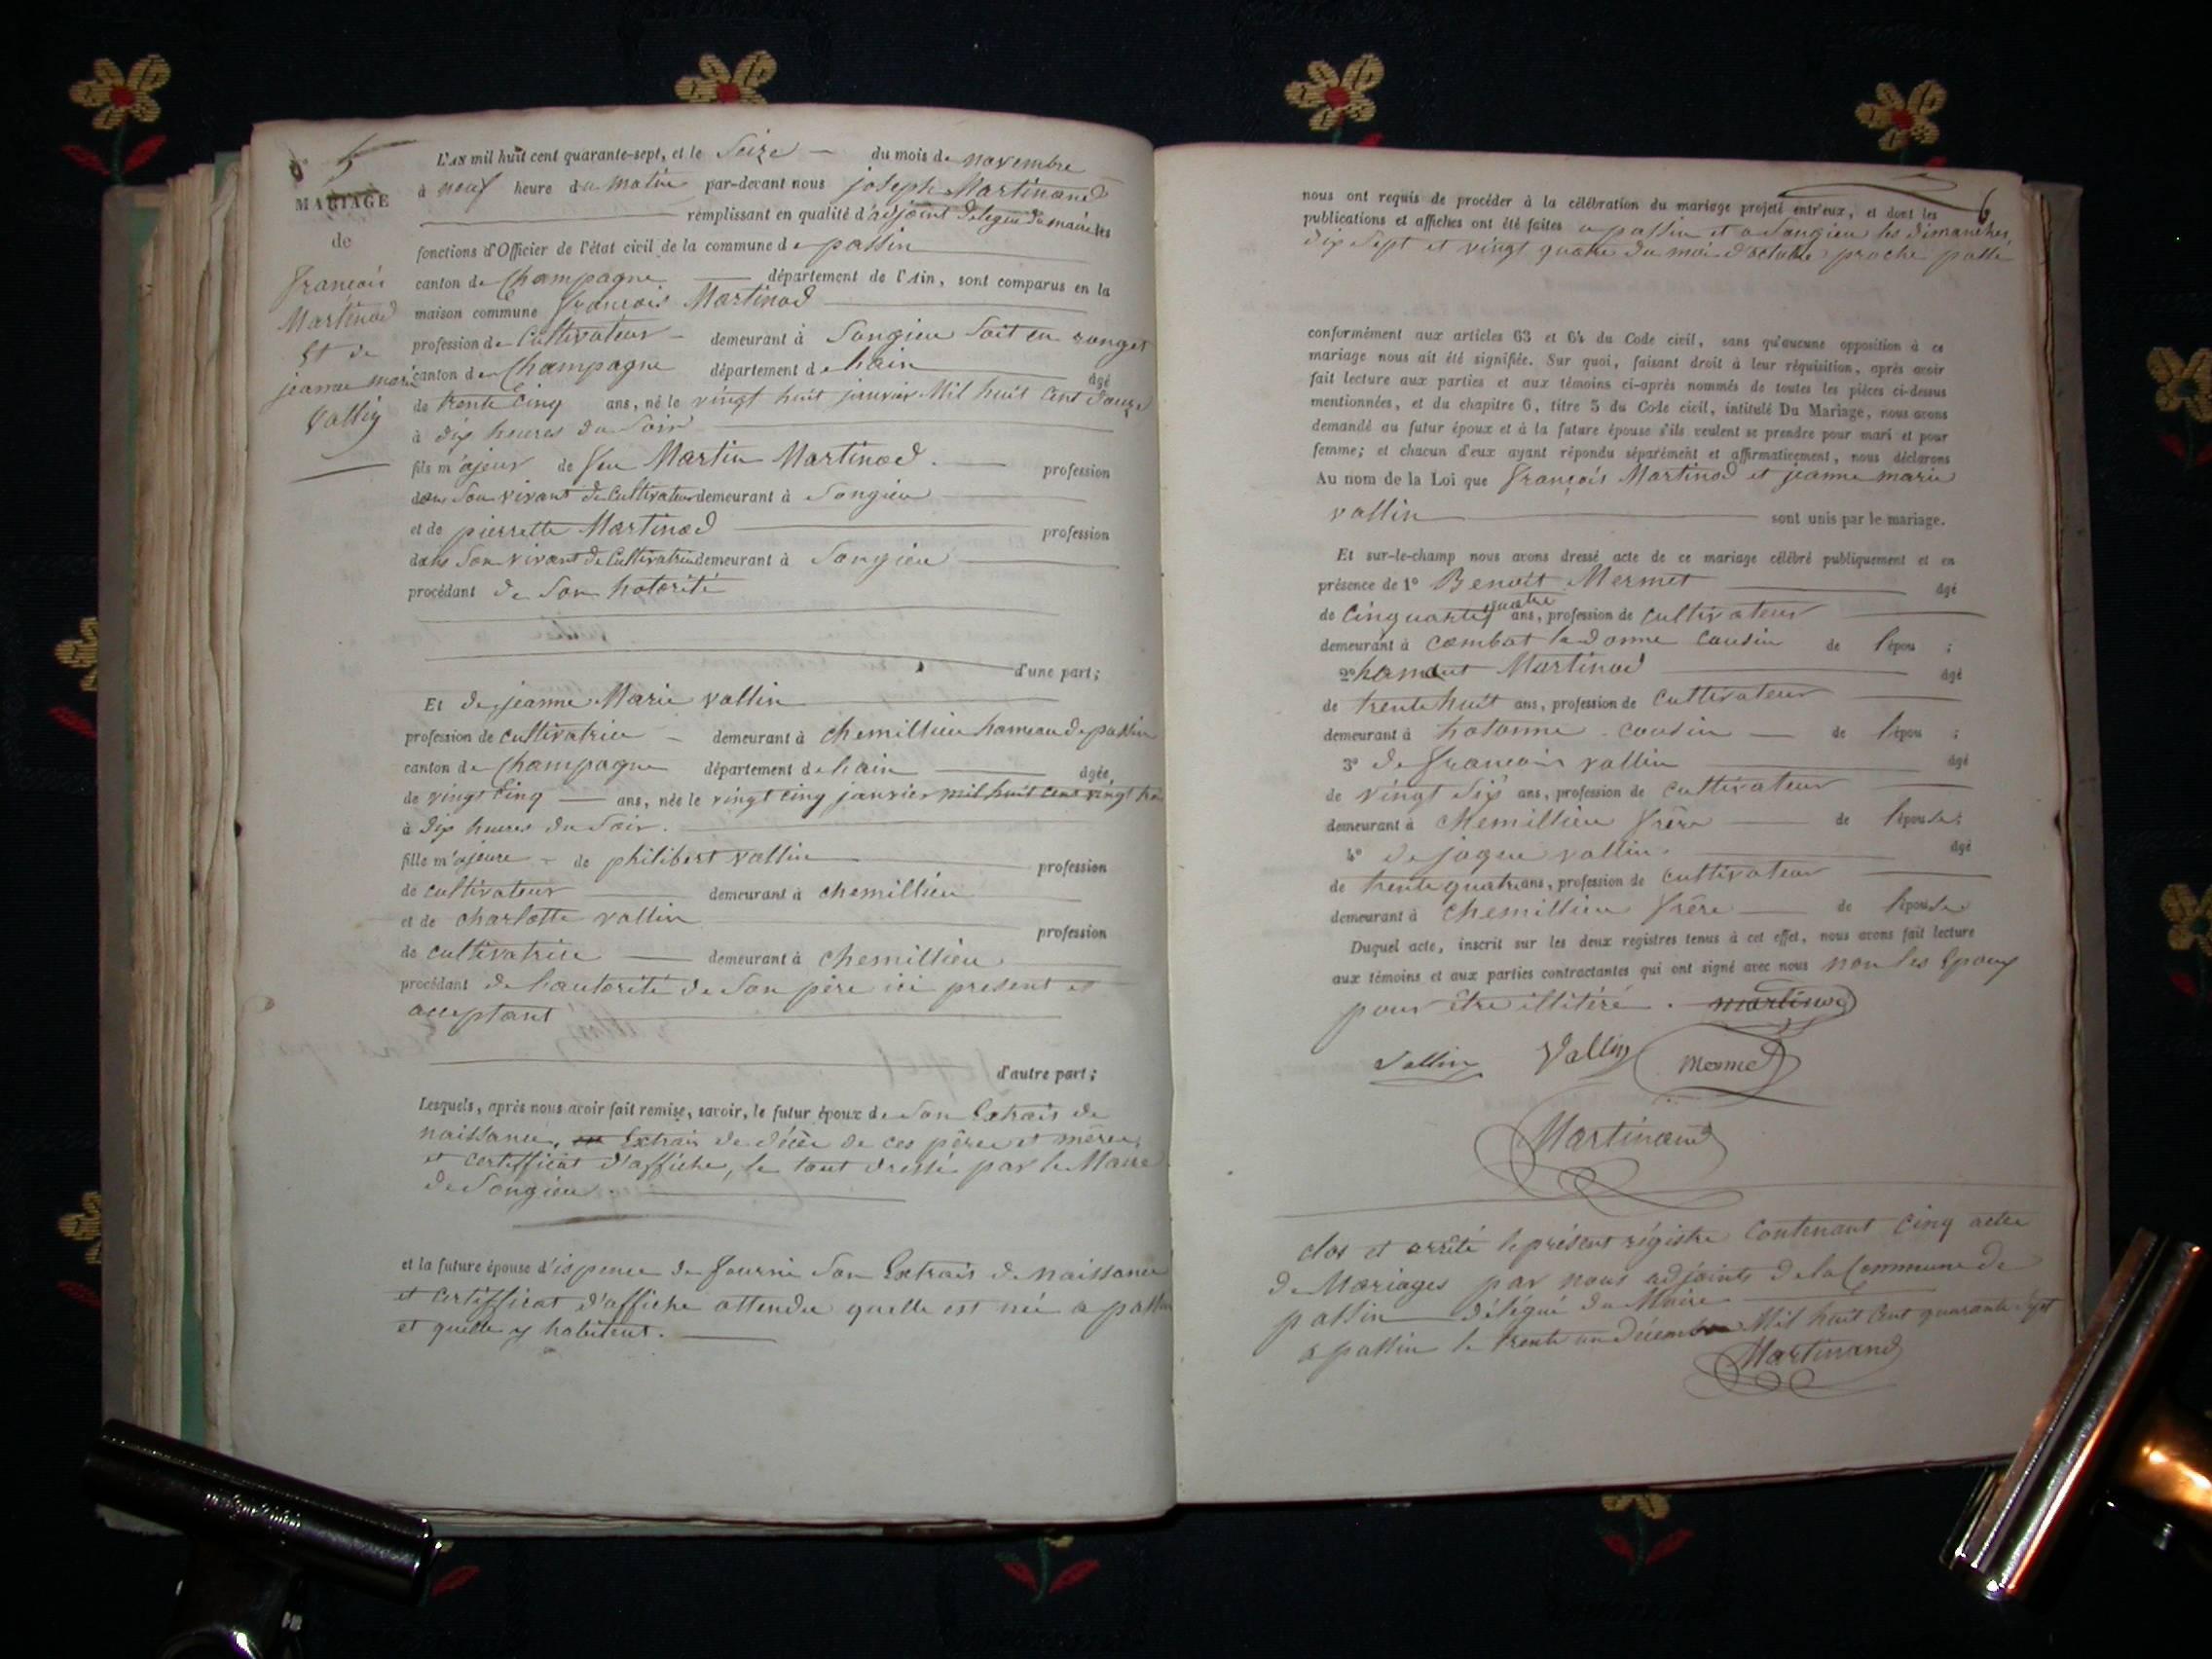 5
MARIAGE
de
françois
Martinod
Et de
jeanne marie
Vallin
L'AN mil huit cent quarante-sept, et le Seize du mois de novembre
à neuf heure du matin par-devant nous joseph Martinand
remplissant en qualité d'adjoint délégué du maire les
fonctions d'Officier de l'état civil de la commune de passin
canton de Champagne département de l'Ain, sont comparus en la
maison commune françois Martinod
profession de Cultivateur demeurant à Songieu Soit en
canton de Champagne département de lain âgé
de trente Cinq ans, né le vingt huit janvier Mil huit Cent douze
à dix heures du Soir
fils majeur de feu Martin Martinod. profession
dans Son vivant de Cultivateur demeurant à Songieu
et de pierrette Martinod profession
dans Son vivant de Cultivatrice demeurant à Songieu
procédant de Son hotorité
d'une part;
Et de jeanne Marie vallin
profession de cultivatrice demeurant à chemillieu hameau de passin
canton de Champagne département de lain âgée
de vingt Cinq ans, née le vingt cinq janvier mil huit cent vingt
à dix heures du Soir.
fille m'ajeure de philibert vallin profession
de cultivateur demeurant à chemillieu
et de charlotte vallin profession
de cultivatrice demeurant à chemillieu
procédant de l'autorité de Son père ici present et
acceptant
d'autre part;
Lesquels, après nous avoir fait remise, savoir, le futur époux de Son Extrais de
naissance, Extrais de décès de ces père et mère,
et certifficat d'affiche, le tout dressé par le Maire
de Songieu.
et la future épouse d'ispence de fournir Son Extrais de naissance
et certifficat d'affiche attendu quelle est née a passin
et quelle y habitent.
6
nous ont requis de procéder à la célébration du mariage projeté entr'eux, et dont les
publications et affiches ont été faites a passin et a Songieu les dimanches
dix Sept et vingt quatre du moi d'octobre proche passé
conformément aux articles 63 et 64 du Code civil, sans qu'aucune opposition à ce
mariage nous ait été signifiée. Sur quoi, faisant droit à leur réquisition, après avoir
fait lecture aux parties et aux témoins ci-après nommés de toutes les pièces ci-dessus
mentionnées, et du chapitre 6, titre 5 du Code civil, intitulé Du Mariage, nous avons
demandé au futur époux et à la future épouse s'ils veulent se prendre pour mari et pour
femme; et chacun d'eux ayant répondu séparément et affirmativement, nous déclarons
Au nom de la Loi que françois Martinod et jeanne marie
vallin sont unis par le mariage.
Et sur-le-champ nous avons dressé acte de ce mariage célébré publiquement et en
présence de 1° Benoit Mermet âgé
de Cinquante quatre ans, profession de cultivateur
demeurant à combat la donne cousin de l'épou ;
2° Martinod âgé
de trente huit ans, profession de cultivateur
demeurant à hotonne cousin de l'épou ;
3° de françois vallin âgé
de vingt Six ans, profession de cultivateur
demeurant à Chemillieu frère de l'épouse;
4° de jaque vallin. âgé
de trente quatre ans, profession de cultivateur
demeurant à Chemillieu frère de l'épouse
Duquel acte, inscrit sur les deux registres tenus à cet effet, nous avons fait lecture
aux témoins et aux parties contractantes qui ont signé avec nous non les Epoux
pour être illitéré. martinod
Vallin Vallin Mermet
Martinand
clos et arrêté le présent régistre contenant Cinq actes
de Mariages par nous adjoints de la Commune de
passin délégué du Maire
a passin le trente un décembre Mil huit Cent quarante Sept
Martinand